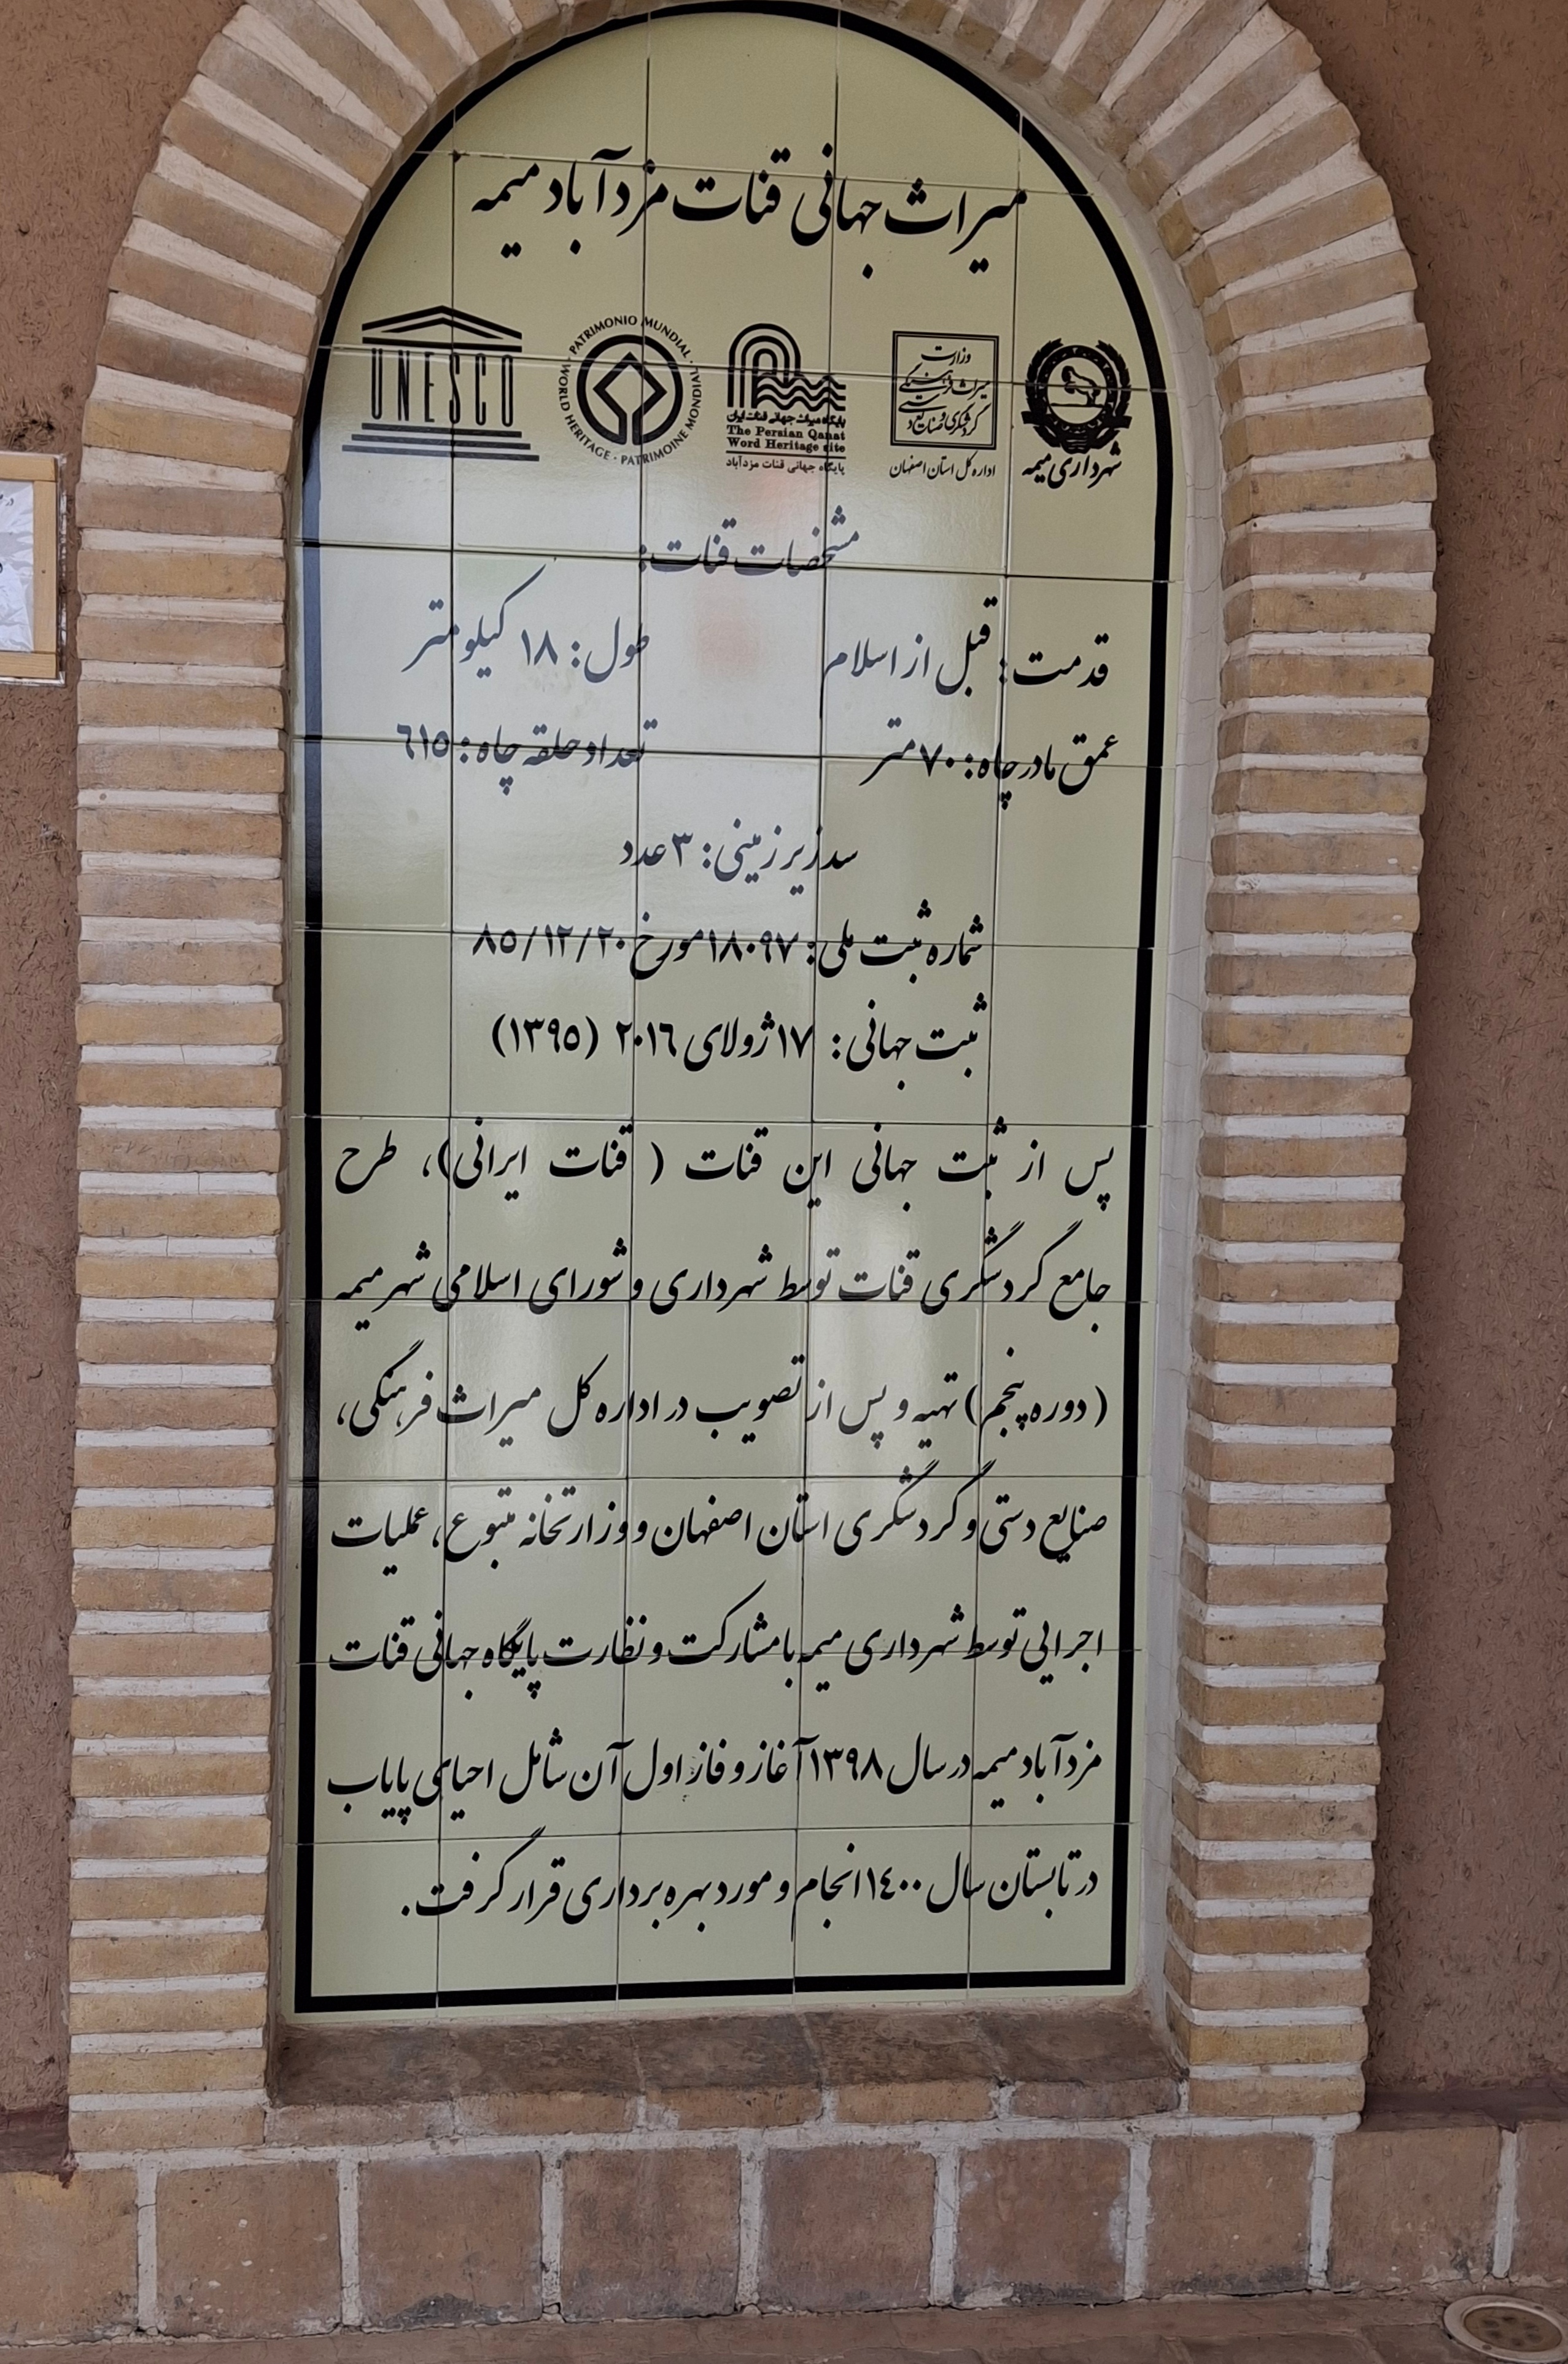 میراث جهانی قنات مزدآباد میمه
UNESCO
WORLD HERITAGE · PATRIMOINE MONDIAL · PATRIMONIO MUNDIAL
پایگاه میراث جهانی قنات ایران
The Persian Qanat
Word Heritage site
پایگاه جهانی قنات مزدآباد
وزارت
میراث فرهنگی
گردشگری و صنایع دستی
اداره کل استان اصفهان
شهرداری میمه
مشخصات قنات:
قدمت: قبل از اسلام طول: ۱۸ کیلومتر
عمق مادرچاه: ۷۰ متر تعداد حلقه چاه: ٦١٥
سد زیرزمینی: ۳ عدد
شماره ثبت ملی: ۱۸۰۹۷ مورخ ۸٥/۱۲/۲۰
ثبت جهانی: ۱۷ ژولای ۲۰۱٦ (۱۳۹٥)
پس از ثبت جهانی این قنات ( قنات ایرانی)، طرح
جامع گردشگری قنات توسط شهرداری و شورای اسلامی شهر میمه
(دوره پنجم) تهیه و پس از تصویب در اداره کل میراث فرهنگی،
صنایع دستی و گردشگری استان اصفهان و وزارتخانه متبوع، عملیات
اجرایی توسط شهرداری میمه با مشارکت و نظارت پایگاه جهانی قنات
مزدآباد میمه در سال ۱۳۹۸ آغاز و فاز اول آن شامل احیای پایاب
در تابستان سال ۱٤۰۰ انجام و مورد بهره برداری قرار گرفت.